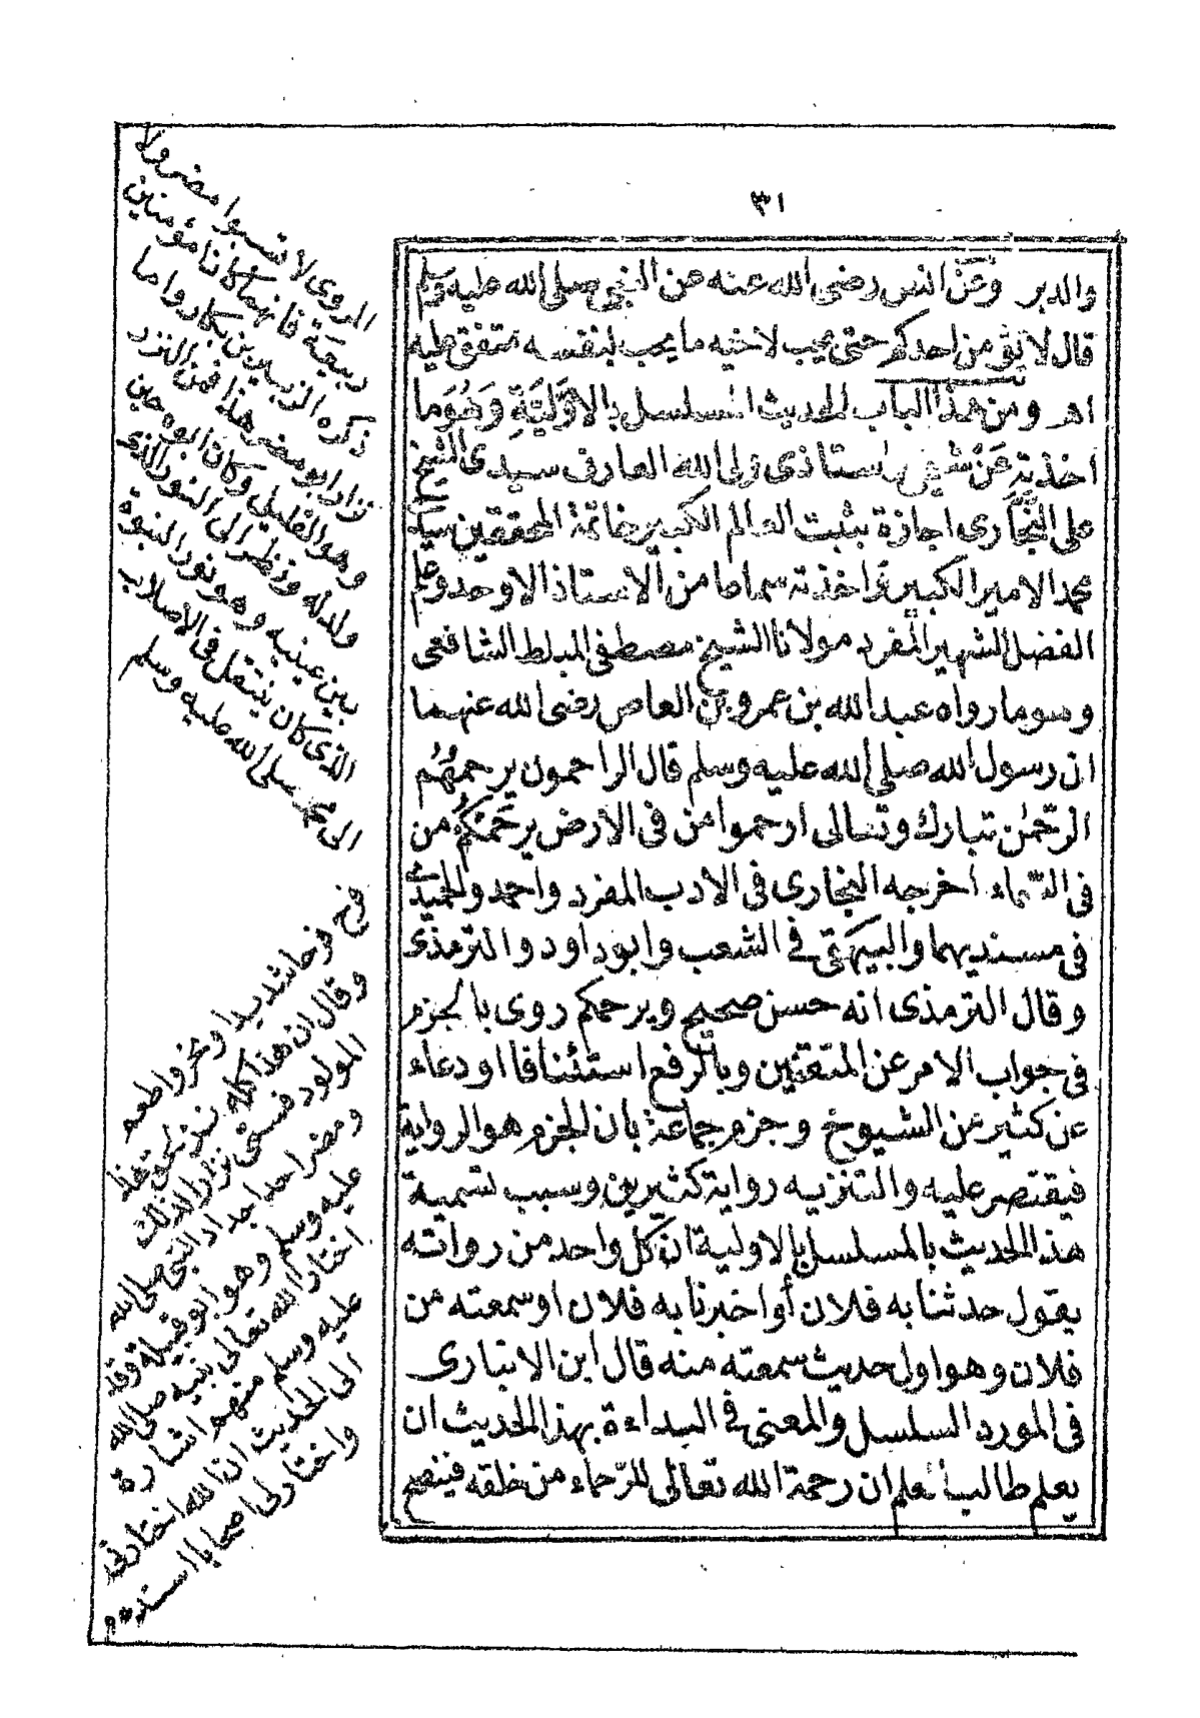 ٣١
والدبر وعن انس رضى الله عنه عن النبى صلى الله عليه وسلم
قال لا يؤمن احدكم حتى يحب لاخيه ما يحب لنفسه متفق عليه
اهـ ومن هذا الباب الحديث المسلسل بالاوَّليَّةِ وَهُوَما
اخذته عَنْ شيخى واستاذى ولى الله العارف سيدى الشيخ
على النجَّارى اجازة بثبت العالم الكبير خاتمة المحققين سيدى
محمد الامير الكبير واخذته سماعا من الاستاذ الاوحد وعلم
الفضل الشهير المفرد مولانا الشيخ مصطفى المبلط الشافعى
وهو ما رواه عبد الله بن عمرو بن العاص رضى الله عنهما
ان رسول الله صلى الله عليه وسلم قال الراحمون يرحمهُمُ
الرّحمٰن تبارك وتعالى ارحموا من فى الارض يرحَمْكُمُ من
فى السّماء اخرجه البخارى فى الادب المفرد واحمد والحميدى
فى مسنديهما والبيهقى فى الشعب وابو داود والترمذى
وقال الترمذى انه حسن صحيح ويرحمكم روى بالجزم
فى جواب الامر عن المتقنين وبالرفع استئنافا او دعاء
عن كثير من الشيوخ وجزم جماعة بان الجزم هو الرواية
فيقتصر عليه والتنزيه رواية كثيرين وسبب تسمية
هذا الحديث بالمسلسل بالاولية ان كل واحد من رواته
يقول حدثنا به فلان أو اخبرنا به فلان او سمعته من
فلان وهو اول حديث سمعته منه قال ابن الانبارى
فى المورد السلسل والمعنى فى البداءة بهذا الحديث ان
يعلم طالب العلم ان رحمة الله تعالى للرّحماء من خلقه فينصح
المروى لا تسبوا مضر ولا
ربيعة فانهما كانا مؤمنين
ذكره الزبير بن بكار واما
نزار ابو مضر هذا فمن النزر
وهو القليل وكان ابوه حين
ولد له ونظر الى النور الذى
بين عينيه وهو نور النبوة
الذى كان ينتقل فى الاصلاب
الى محمد صلى الله عليه وسلم
فرح فرحا شديدا ونحر واطعم
وقال ان هذا كله نزر لحق هذا
المولود فسمى نزارا لذلك
ومضر احد اجداد النبى صلى الله
عليه وسلم وهو ابو قبيلة وقد
اختار الله تعالى نبيه صلى الله
عليه وسلم منهم اشارة
الى الحديث ان الله اختارنى
واختار لى اصحابا اسنده